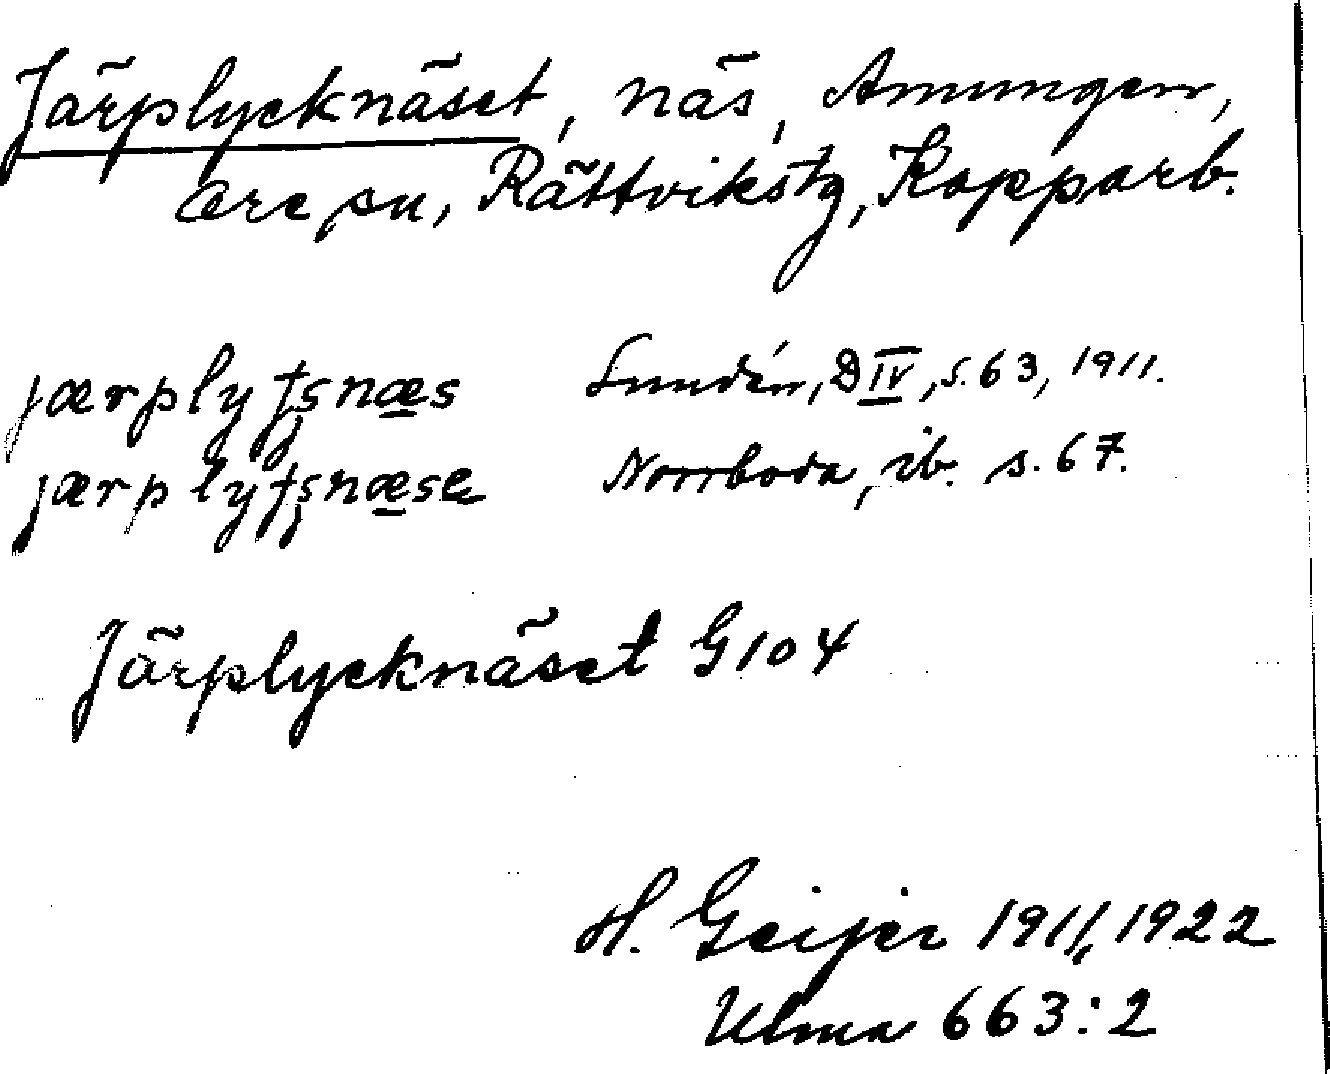 Järplycknäset, näs, Amungen,
Ore sn, Rättvikstg, Kopparb.
jærplyʈʂnæs Sundén, D IV, s. 63, 1911.
jærplyʈʂnæse Norrboda, ib. s. 67.
Järplycknäset G 104
H. Geijer 1911, 1922
Ulma 663:2